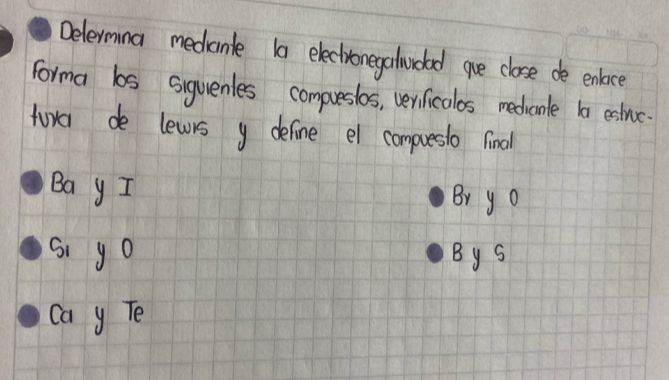 Determina mediante la electronegatividad que clase de enlace
forma los siguientes compuestos, verificalos mediante la estruc-
tura de lewis y define el compuesto final
Ba y I
Br y O
Si y O
B y S
Ca y Te